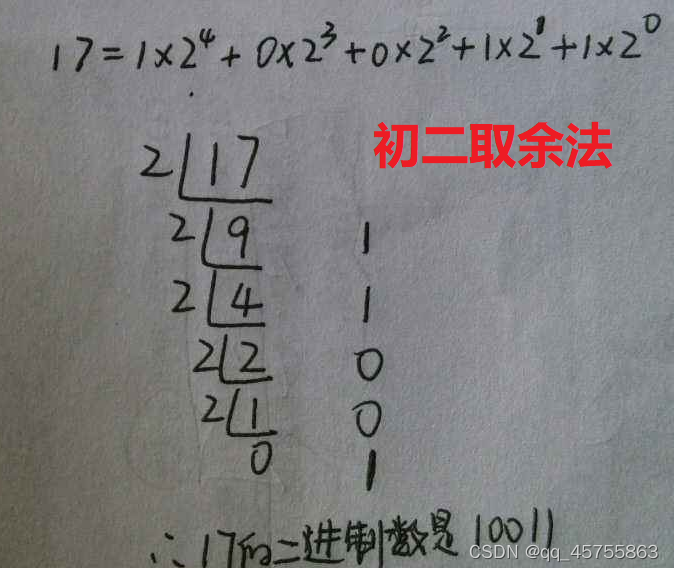 17=1×2⁴+0×2³+0×2²+1×2¹+1×2⁰
初二取余法
2 17
2 9 1
2 4 1
2 2 0
2 1 0
0 1
∴17的二进制数是10011
CSDN @qq_45755863